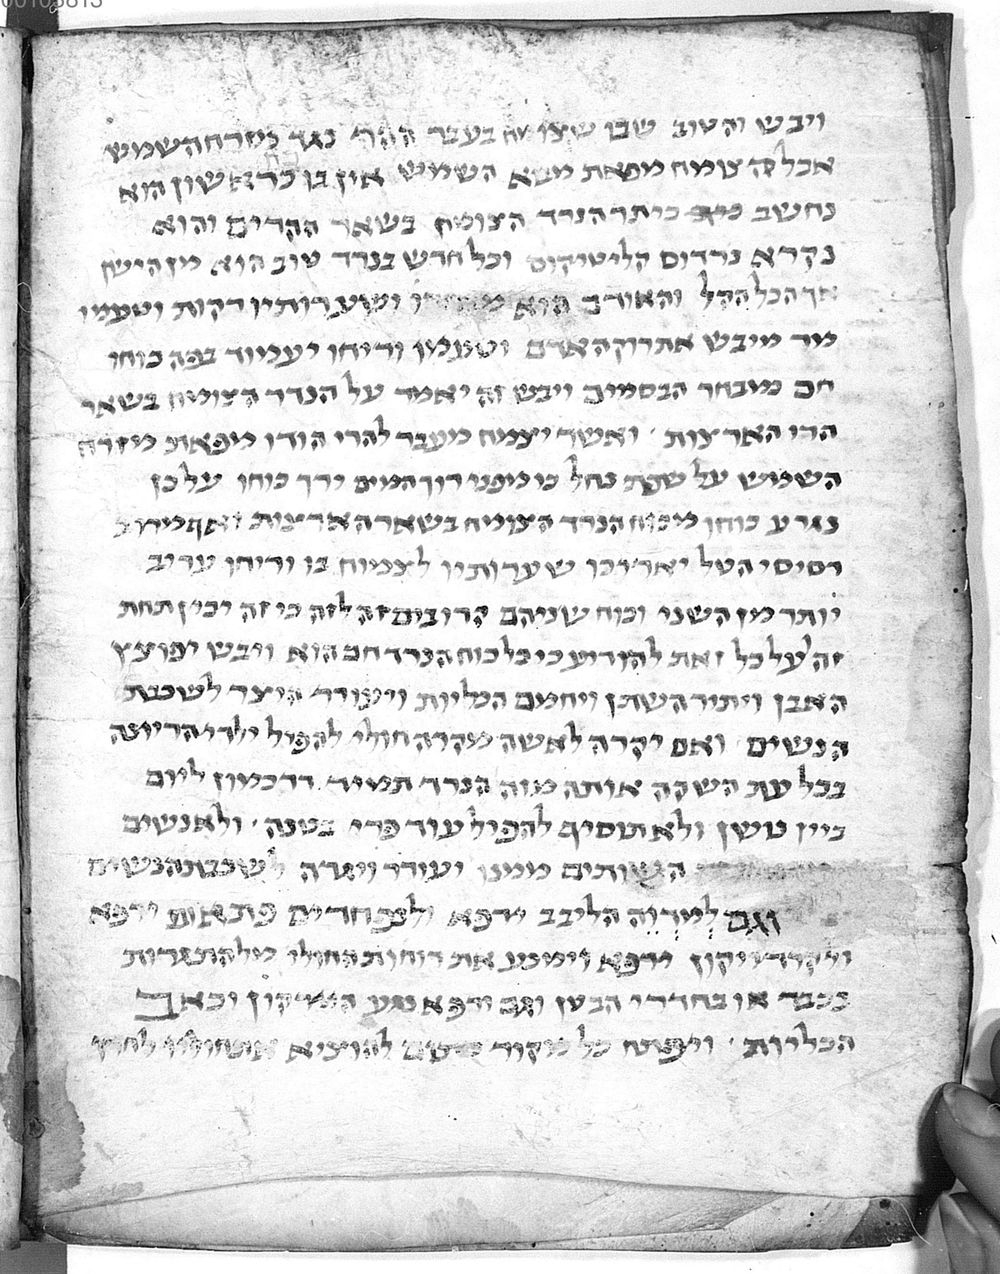 00103813
ויבש והטוב שבו שצומח בעבר ההר נגד מזרח השמש
אבל זה צומח מפאת מבא השמש אין בו כראשון הוא
נחשב כיתר הנרד הצומח בשאר ההרים והוא
נקרא נרדוס הליטיקוס וכל חדש בנרד טוב הוא מן הישן
אך הכל הקל והאודם הוא ושערותיו דקות וטעמו
מר מיבש את רוק האדם וטעמו וריחו יעמוד בפה כוחו
חם מובחר הבסמים ויבש זה יאמר על הנרד הצומח בשאר
הרי הארצות ׳ ואשר יצמח מעבר להרי הודו מפאת מזרח
השמש על שפת נחל כו מפני רוך המים ירך כוחו על כן
נגרע כוחו מכוח הנרד הצומח בשאר הארצות ואף
רסיסי הטל יאריכו שערותיו לצמוח בו וריחו עריב
יותר מן השני וכוח שניהם קרובים זה לזה כי זה יכין תחת
זה על כל זאת להודיע כי כל כוח הנרד חם הוא ויבש יפוצץ
האבן ויתיר השתן ויחמם הכליות ויעורר היצר לשכבת
הנשים ׳ ואם יקרה לאשה מקרה חולי להפיל ילדי הריונה
בכל עת השקה אותה מזה הנרד תמיד דרכמון ליום
ביין טושן ולא תוסיף להפיל עוד פרי בטנה ׳ ולאנשים
השותים ממנו יעורר ויגרה לשכבת הנשים
וגם לִמְדְוֵה הליבב ירפא ולנפחדים פתאום ירפא
ולקרדייקון ירפא וימנע את רוחות החולי מלהתגרות
בכבד או בחדרי הבטן וגם ירפא נגע הירקון וכאב
הכליות ׳ ויפתח כל מקור להוציא לחוץ